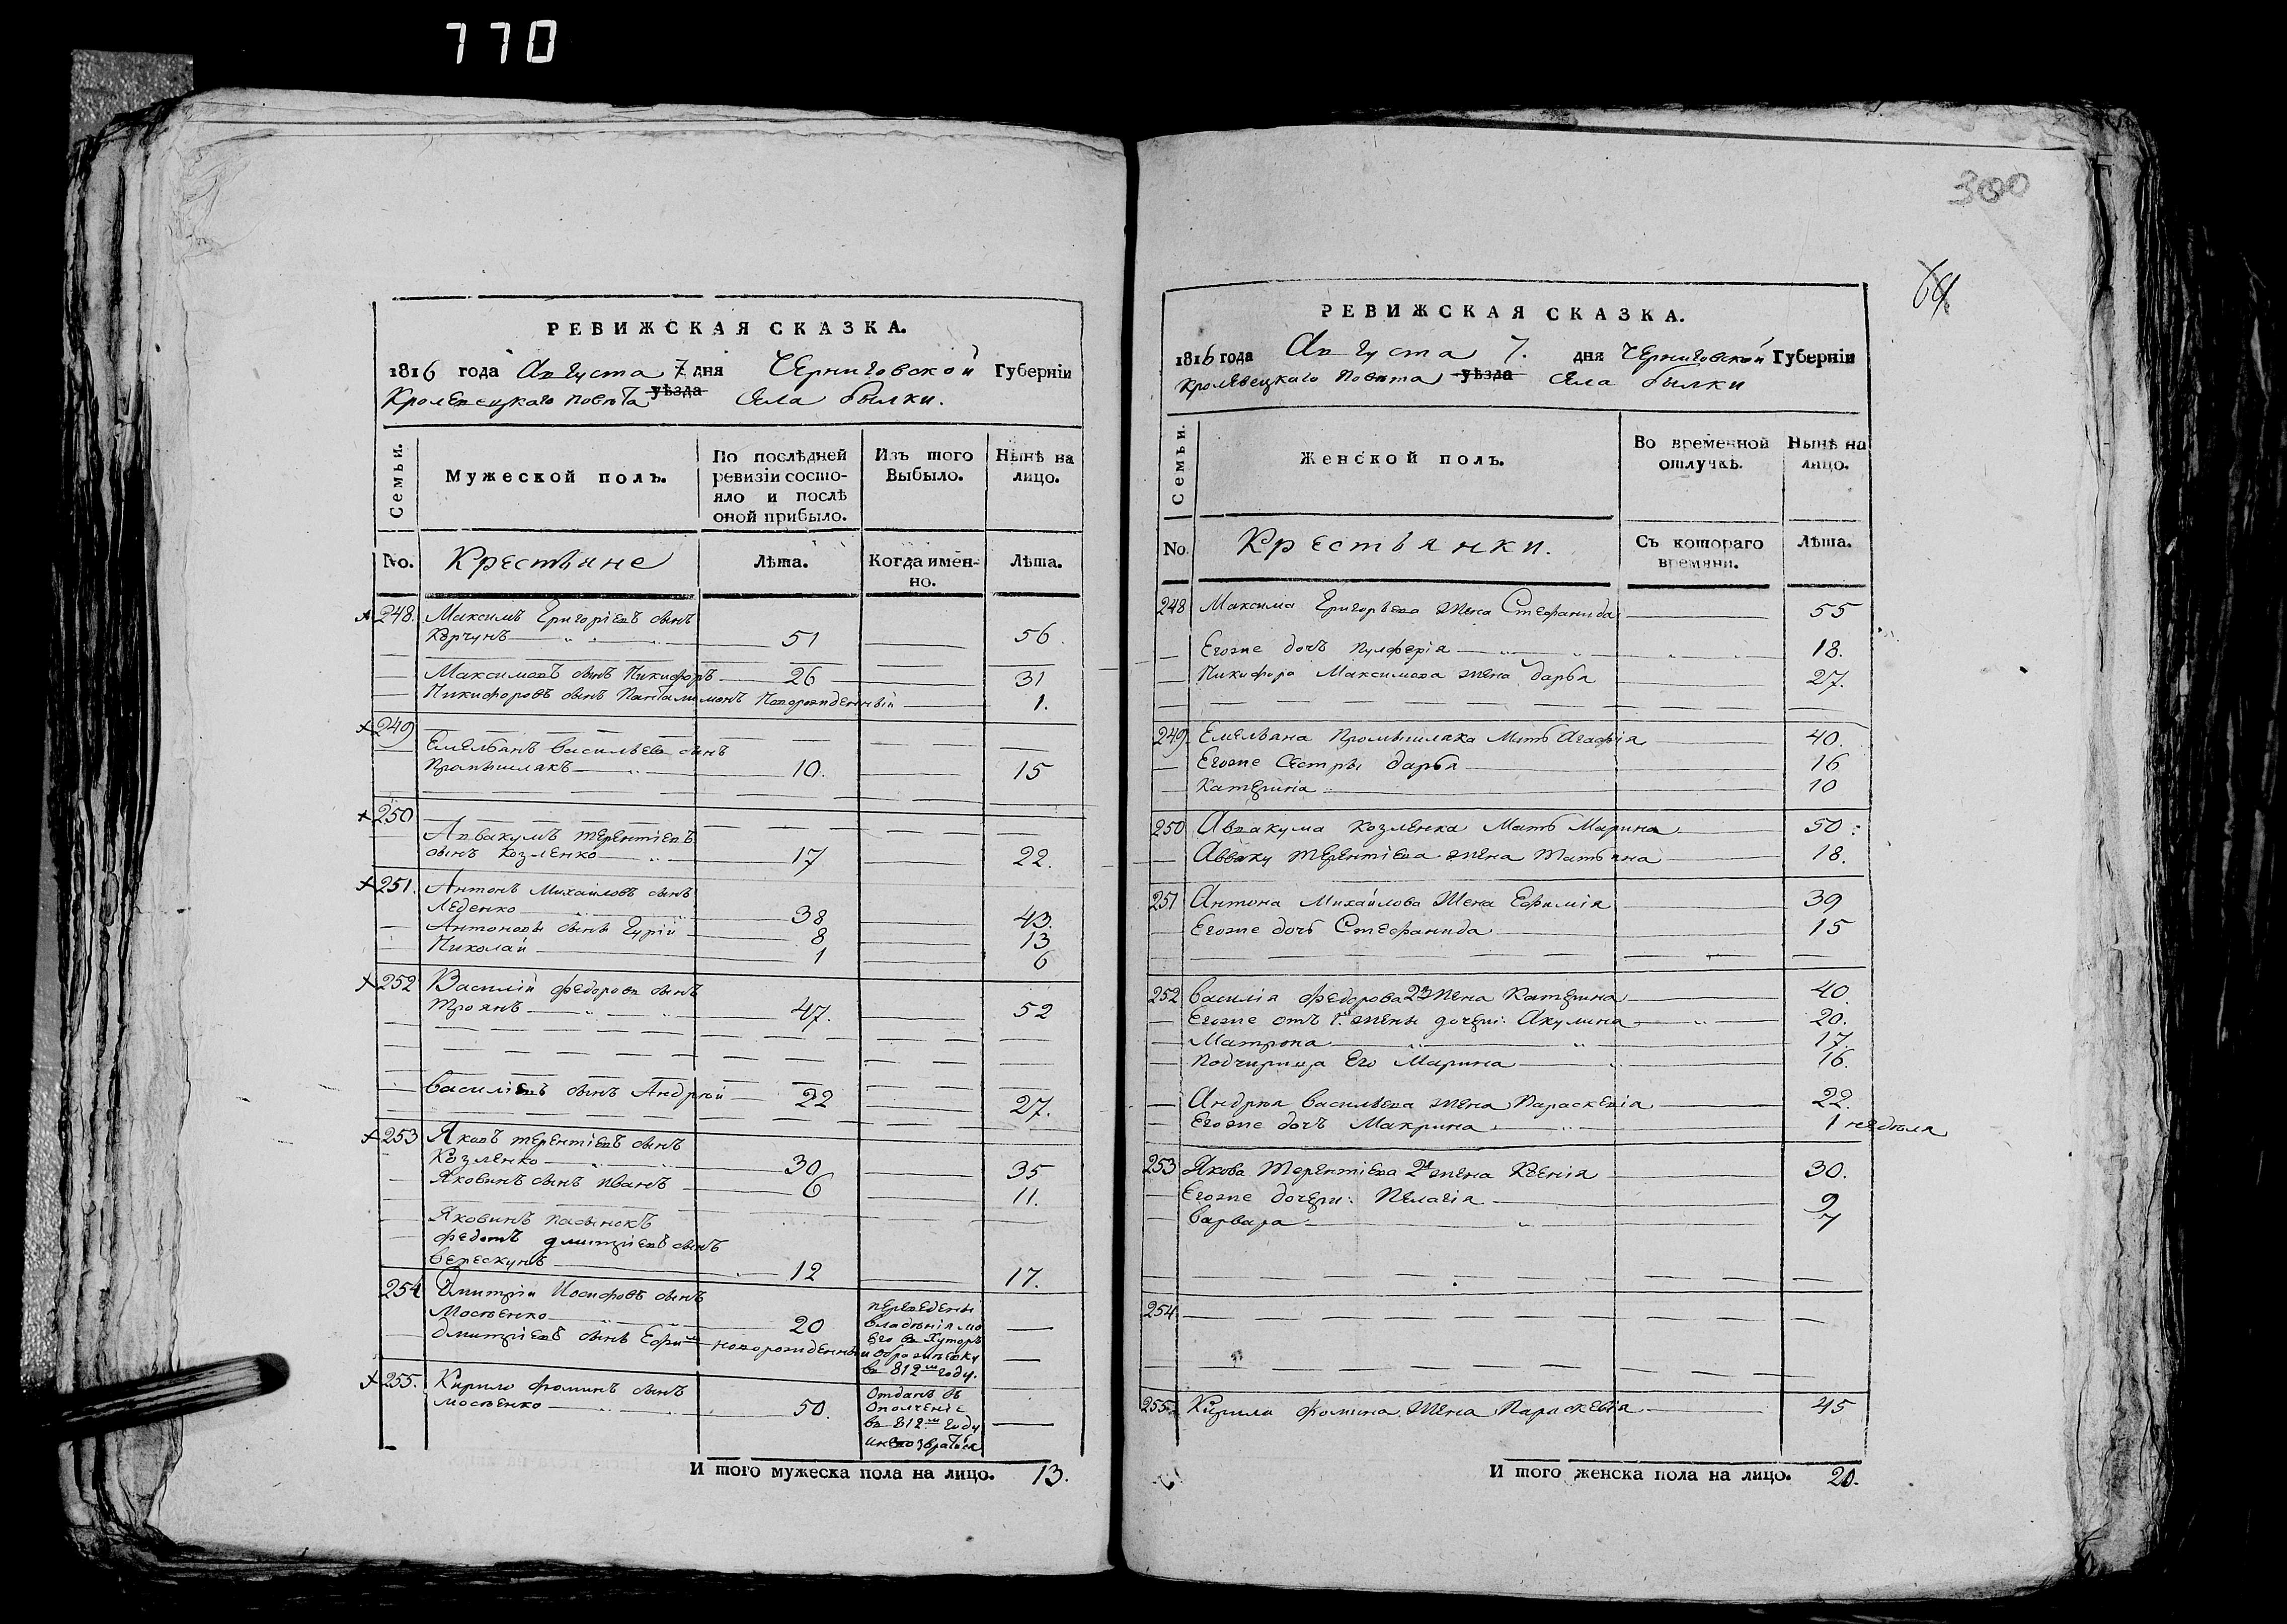 770
РЕВИЖСКАЯ СКАЗКА.
1816 года Августа 7. дня Черниговской Губерніи
Кролевецкаго повѣта уѣзда Села былки.
Семьи.
Мужеской полъ.
По послѣдней
ревизіи состо-
яло и послѣ
оной прибыло.
Изъ того
Выбыло.
Нынѣ на
лицо.
No. Крестьяне Лѣта. Когда имен-
но.
Лѣта.
248. Максимъ Григоріевъ сынъ
Корчунъ 51 56.
Максимовъ сынъ Никифоръ 26 31
Никифоровъ сынъ Панталимонъ Новорожденный 1.
249
Емельянъ Васильевъ сынъ
10. 15
250
Аввакумъ Терентіевъ
сынъ Козленко 17 22.
251. Антонъ Михайловъ сынъ
Леденко 38 43.
Антоновы сынъ Гурій 8 13
Николай 1 6
252 Василій Федоровъ сынъ
Троянъ 47. 52
Василіевъ сынъ Андрѣй 22 27.
253 Яковъ Терентіевъ сынъ
Козленко 30 35
Яковинъ сынъ Иванъ 6 11.
Яковинъ пасынокъ
Федотъ Дмитріевъ сынъ
Верескунъ 12 17.
254 Дмитрій Иосифовъ сынъ
Мосѣенко 20
Дмитріевъ сынъ Ефим новорожденный
переведены
владѣнія мо
его въ Хуторъ
Ображѣевку
въ 812м году.
255. Кирило Фоминъ сынъ
Мосѣенко 50.
Отданъ въ
Ополченіе
въ 812м году
и невозвратился
И того мужеска пола на лицо. 13.
300
64
РЕВИЖСКАЯ СКАЗКА.
1816 года Августа 7. дня Черниговской Губерніи
Кролевецкаго Повѣта уѣзда Села былки
Семьи.
Женской полъ.
Во временной
отлучкѣ.
Нынѣ на
лицо.
No. Крестьянки. Съ котораго
времяни.
Лѣта.
248 Максима Григорьева жена Стефанида 55
Егоже дочь Пулферія 18.
Никифора Максимова жена Дарья 27.
249 Емельяна Промышляка Мать Агафія 40.
Егоже Сестры Дарья 16
Катерина 10
250 Аввакума Козленка Мать Марина 50
Авваку Терентіева жена Татьяна 18.
251 Антона Михайлова Жена Ефимія 39
Егоже дочь Стефанида 15
252 Василія Федорова 2я жена Катерина 40.
Егоже отъ 1й жены дочери: Акулина 20.
Матрона 17.
Подчирица Его Марина 16.
Андрѣя Васильева жена Параскевія 22.
Егоже дочь Макрина 1 недѣля
253 Якова Терентіева 2я жена Ксенія 30.
Егоже дочери: Пелагія 9
Варвара 7
254
255. Кирила Фомина Жена Параскевія 45
И того женска пола на лицо. 20.